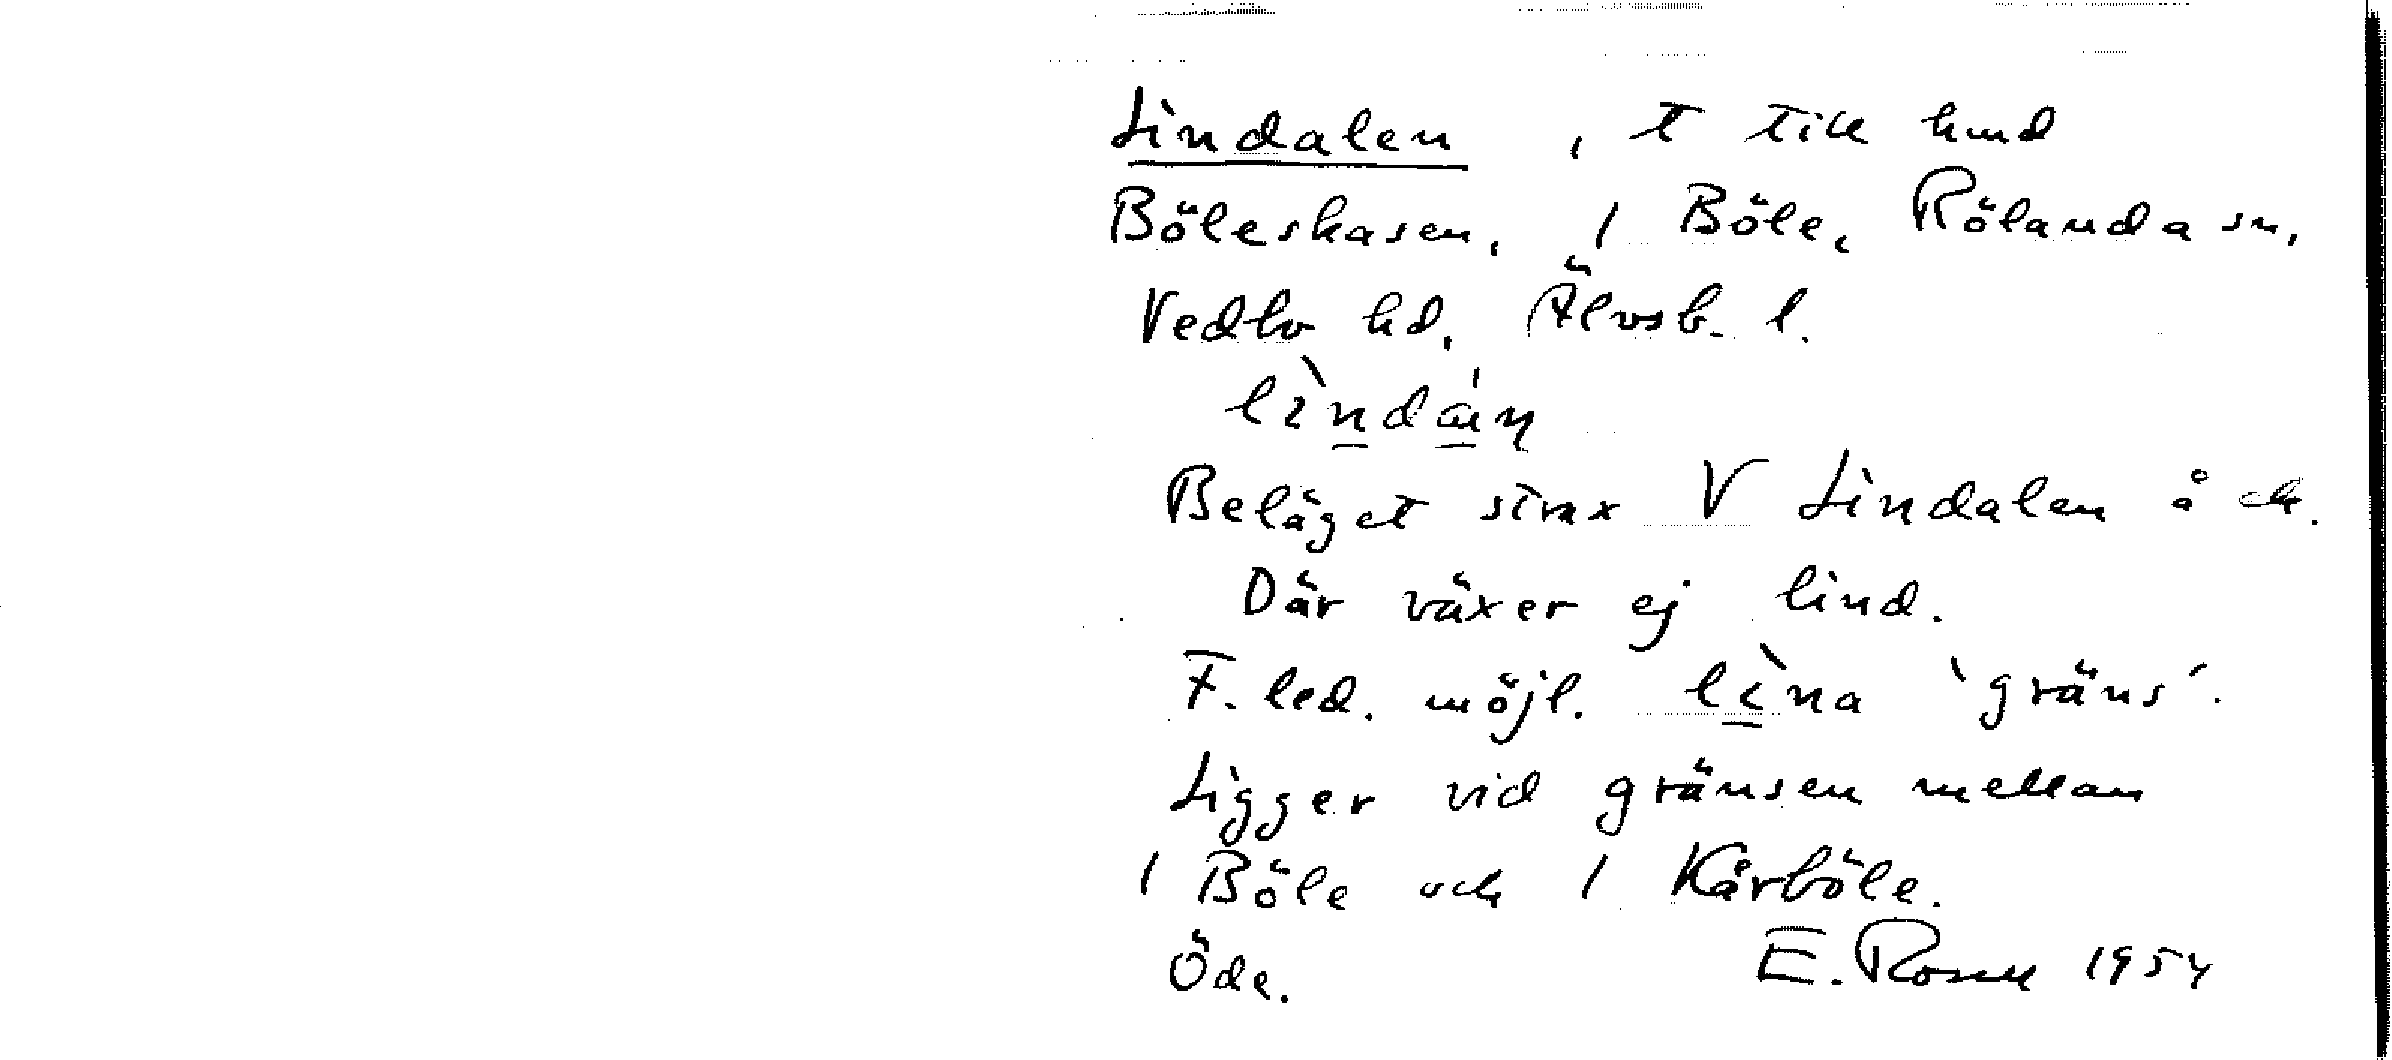 Lindalen, t till hmd
Böleskasen, 1 Böle, Rölanda sn,
Vedbo hd, Älvsb. l.
Beläget strax V Lindalen å ek.
Där växer ej lind.
F. led. möjl. lìna 'gräns'.
Ligger vid gränsen mellan
1 Böle och 1 Kårböle.
Öde. E. Rosell 1954